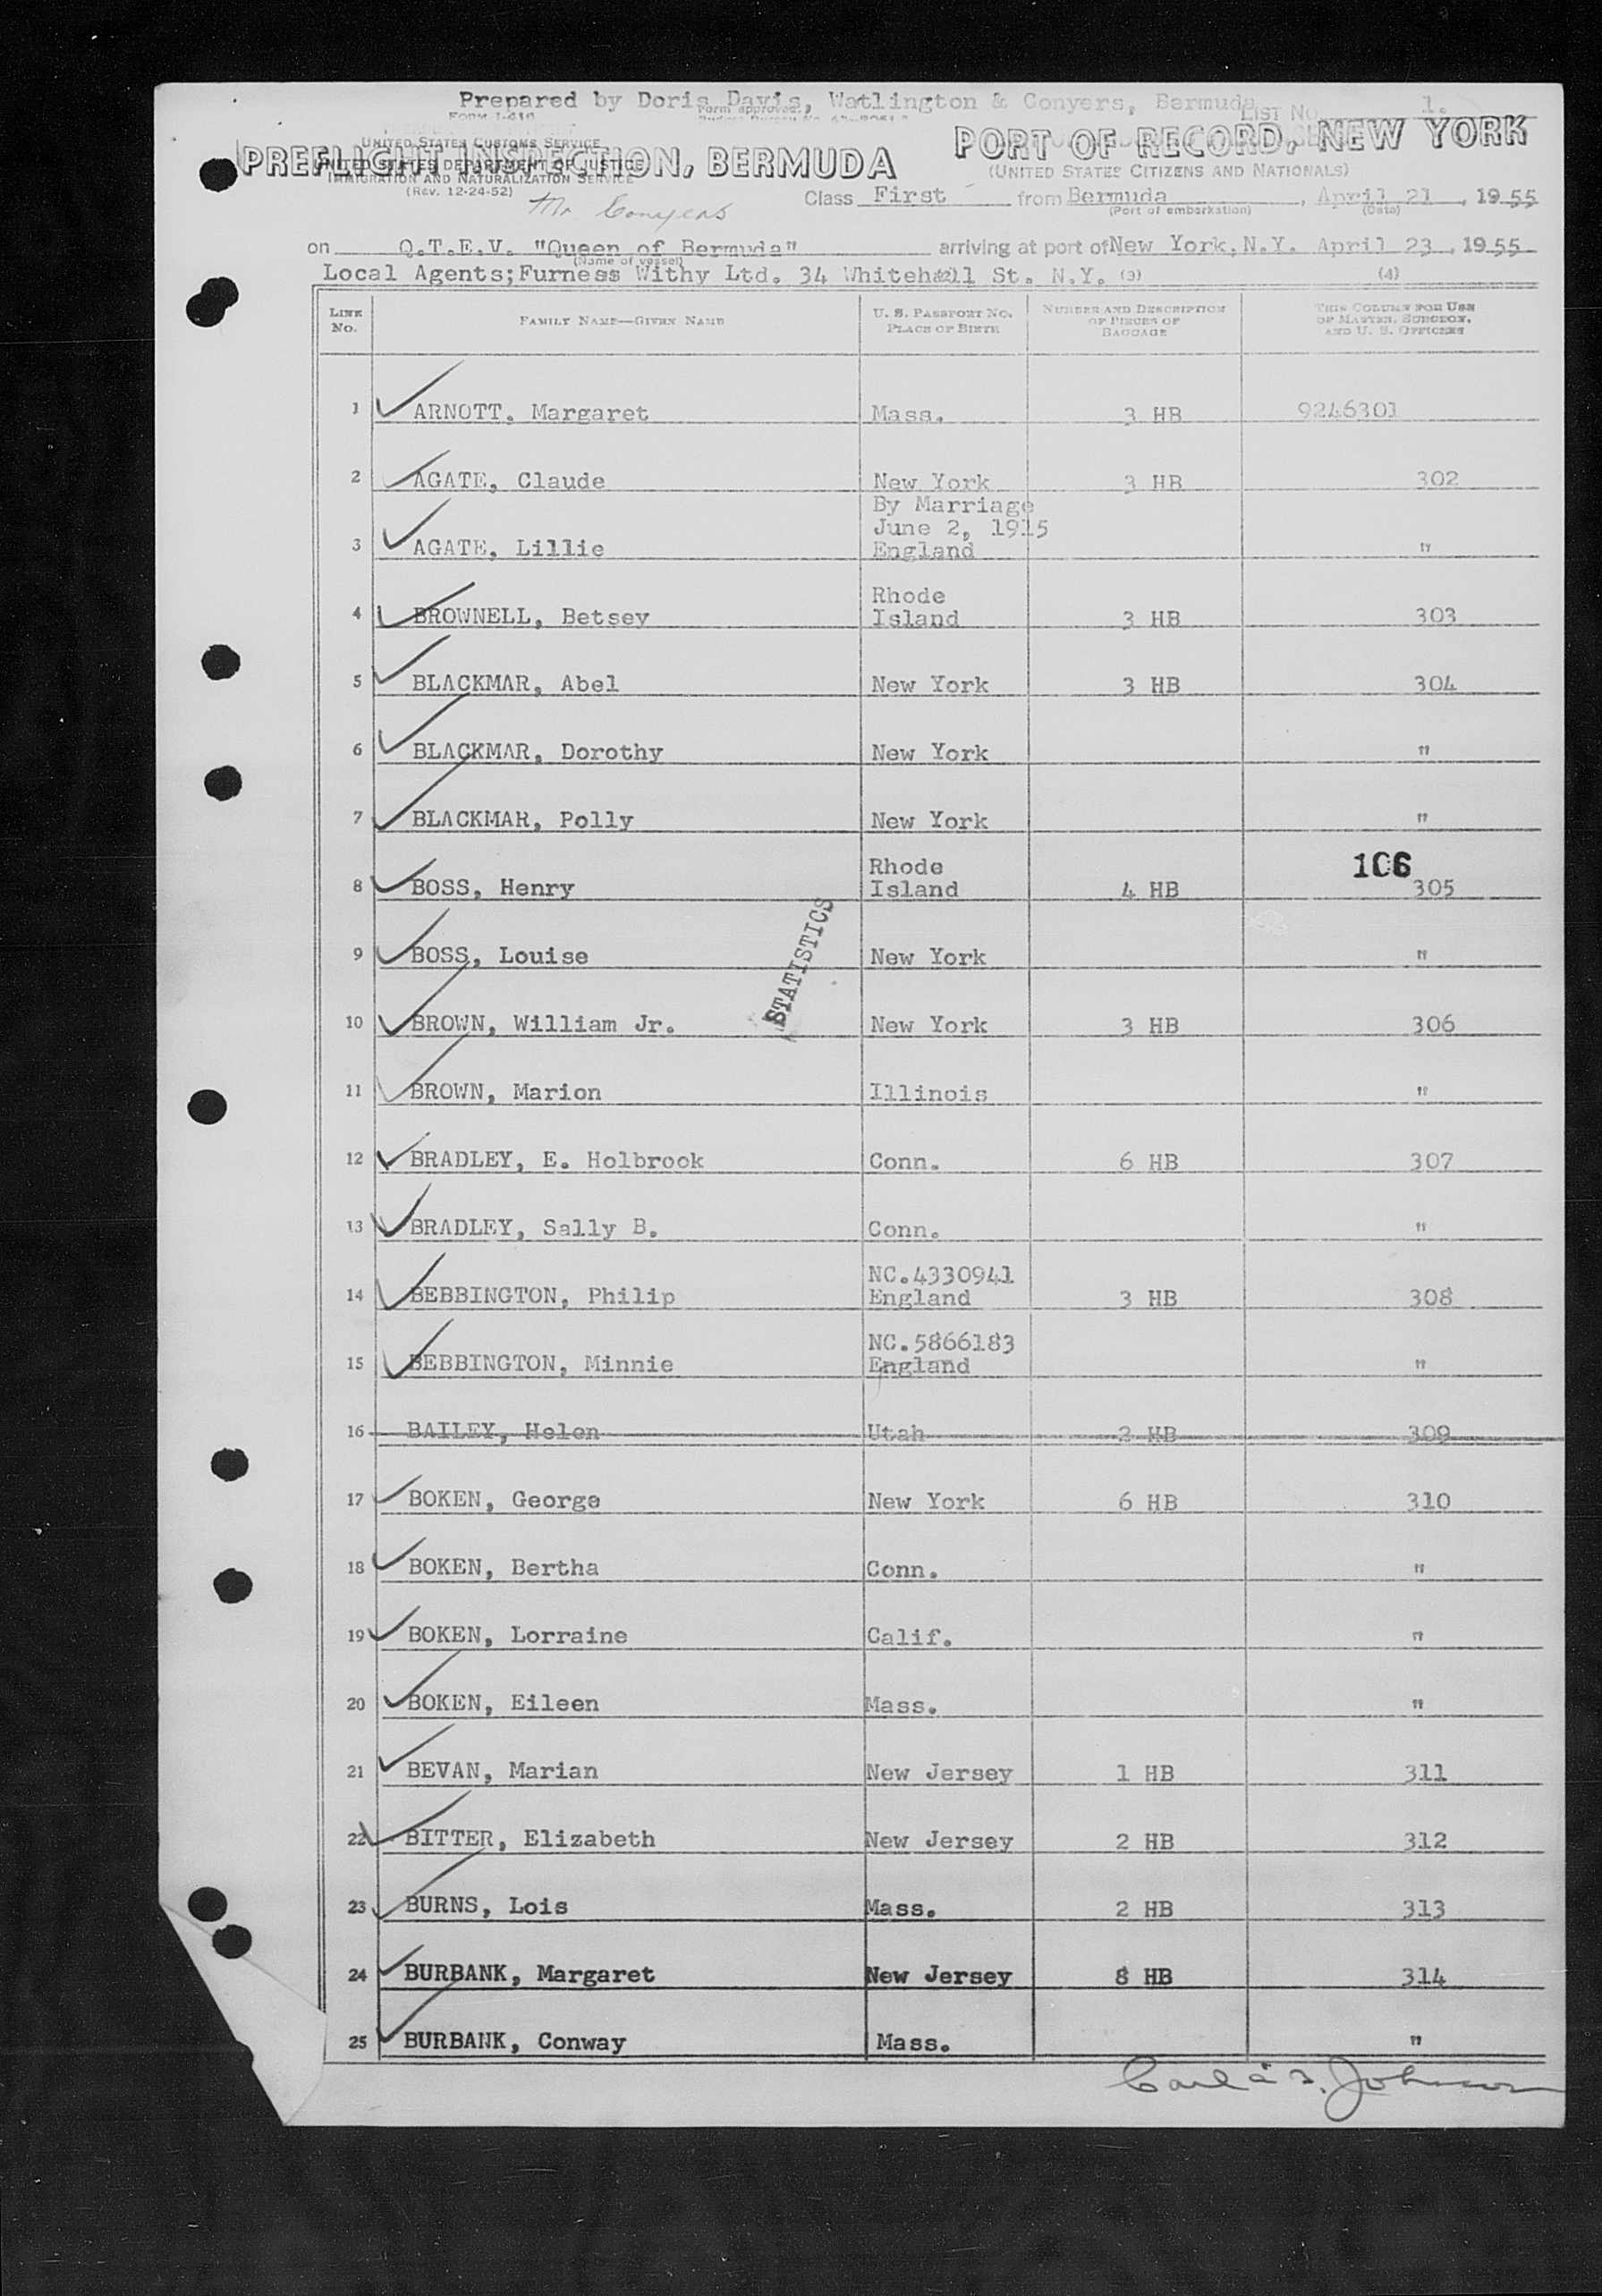 Prepared by Doris Davis, Watlington & Conyers, Bermuda
Form I-416
Form approved.
LIST No. 1.
UNITED STATES CUSTOMS SERVICE
UNITED STATES DEPARTMENT OF JUSTICE
IMMIGRATION AND NATURALIZATION SERVICE
(Rev. 12-24-52)
PREFLIGHT INSPECTION, BERMUDA
PORT OF RECORD, NEW YORK
(UNITED STATES CITIZENS AND NATIONALS)
Mr Conyers
Class First from Bermuda, April 21, 1955
(Port of embarkation) (Date)
on Q.T.E.V. "Queen of Bermuda" arriving at port of New York, N.Y. April 23, 1955
(Name of vessel)
Local Agents; Furness Withy Ltd. 34 Whitehall St. N.Y. (3) (4)
LINE No. FAMILY NAME—GIVEN NAME U. S. PASSPORT NO. PLACE OF BIRTH NUMBER AND DESCRIPTION OF PIECES OF BAGGAGE THIS COLUMN FOR USE OF MASTER, SURGEON, AND U. S. OFFICERS
1 ARNOTT, Margaret Mass. 3 HB 9246301
2 AGATE, Claude New York 3 HB 302
By Marriage
June 2, 1915
3 AGATE, Lillie England "
Rhode
4 BROWNELL, Betsey Island 3 HB 303
5 BLACKMAR, Abel New York 3 HB 304
6 BLACKMAR, Dorothy New York "
7 BLACKMAR, Polly New York "
Rhode 106
8 BOSS, Henry Island 4 HB 305
STATISTICS
9 BOSS, Louise New York "
10 BROWN, William Jr. New York 3 HB 306
11 BROWN, Marion Illinois "
12 BRADLEY, E. Holbrook Conn. 6 HB 307
13 BRADLEY, Sally B. Conn. "
NC.4330941
14 BEBBINGTON, Philip England 3 HB 308
NC.5866183
15 BEBBINGTON, Minnie England "
16 BAILEY, Helen Utah 2 HB 309
17 BOKEN, George New York 6 HB 310
18 BOKEN, Bertha Conn. "
19 BOKEN, Lorraine Calif. "
20 BOKEN, Eileen Mass. "
21 BEVAN, Marian New Jersey 1 HB 311
22 BITTER, Elizabeth New Jersey 2 HB 312
23 BURNS, Lois Mass. 2 HB 313
24 BURBANK, Margaret New Jersey 8 HB 314
25 BURBANK, Conway Mass. "
Johnson